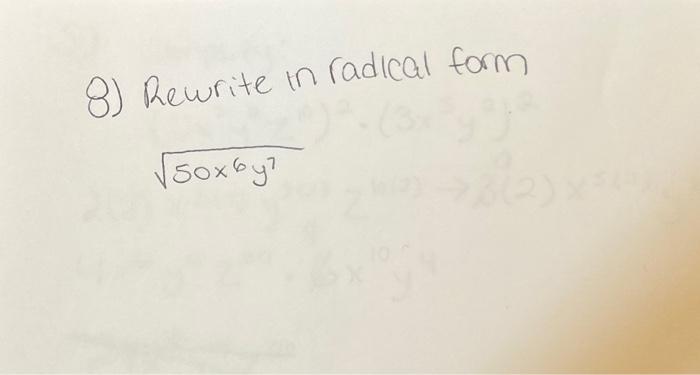 8) Rewrite in radical form
√50x⁶y⁷